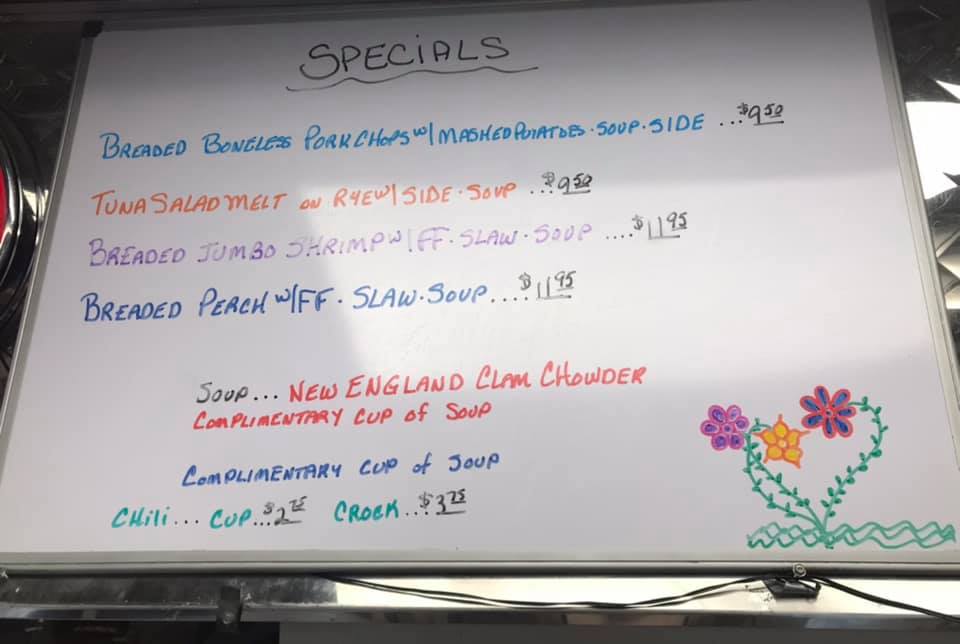 SPECIALS
BREADED BONELESS PORK CHOPS W/ MASHED POTATOES · SOUP · SIDE ... $9.50
TUNA SALAD MELT ON RYE W/ SIDE · SOUP ... $9.50
BREADED JUMBO SHRIMP W/ FF · SLAW · SOUP .... $11.95
BREADED PERCH W/ FF · SLAW · SOUP .... $11.95
SOUP... NEW ENGLAND CLAM CHOWDER
COMPLIMENTARY CUP of SOUP
COMPLIMENTARY CUP of SOUP
CHili... CUP...$2.75 CROCK...$3.75